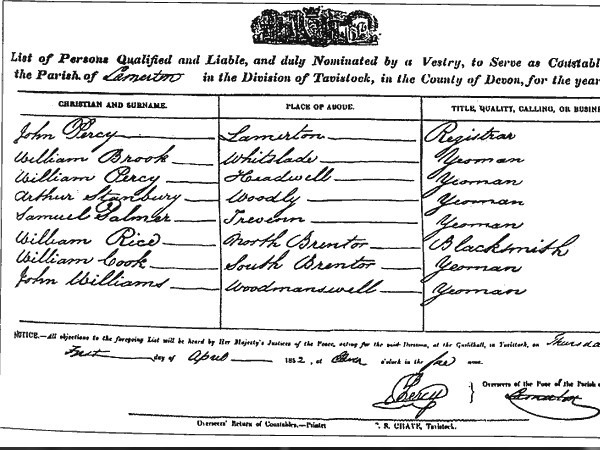 List of Persons Qualified and Liable, and duly Nominated by a Vestry, to Serve as Constabl
the Parish of Lamerton in the Division of Tavistock, in the County of Devon, for the year
CHRISTIAN AND SURNAME. PLACE OF ABODE. TITLE, QUALITY, CALLING, OR BUSINE
John Percy Lamerton Registrar
William Brook Whitslade Yeoman
William Percy Headwell Yeoman
Arthur Stanbury Woodly Yeoman
Samuel Palmer Trevenn Yeoman
William Rice North Brentor Blacksmith
William Cook South Brentor Yeoman
John Williams Woodmanswell Yeoman
NOTICE.—All objections to the foregoing List will be heard by Her Majesty's Justices of the Peace, acting for the said Division, at the Guildhall, in Tavistock, on Thursda
First day of April 1852, at o'clock in the fore noon.
Percy Overseers of the Poor of the Parish o
Lamerton
Overseers' Return of Constables.—Printer T. S. CHAVE, Tavistock.